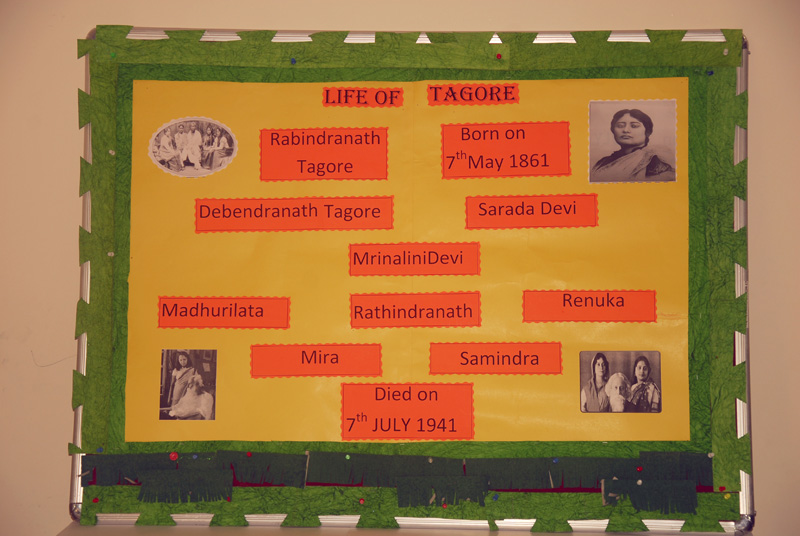 LIFE OF TAGORE
Rabindranath
Tagore
Born on
7th May 1861
Debendranath Tagore
Sarada Devi
MrinaliniDevi
Madhurilata
Rathindranath
Renuka
Mira
Samindra
Died on
7th JULY 1941